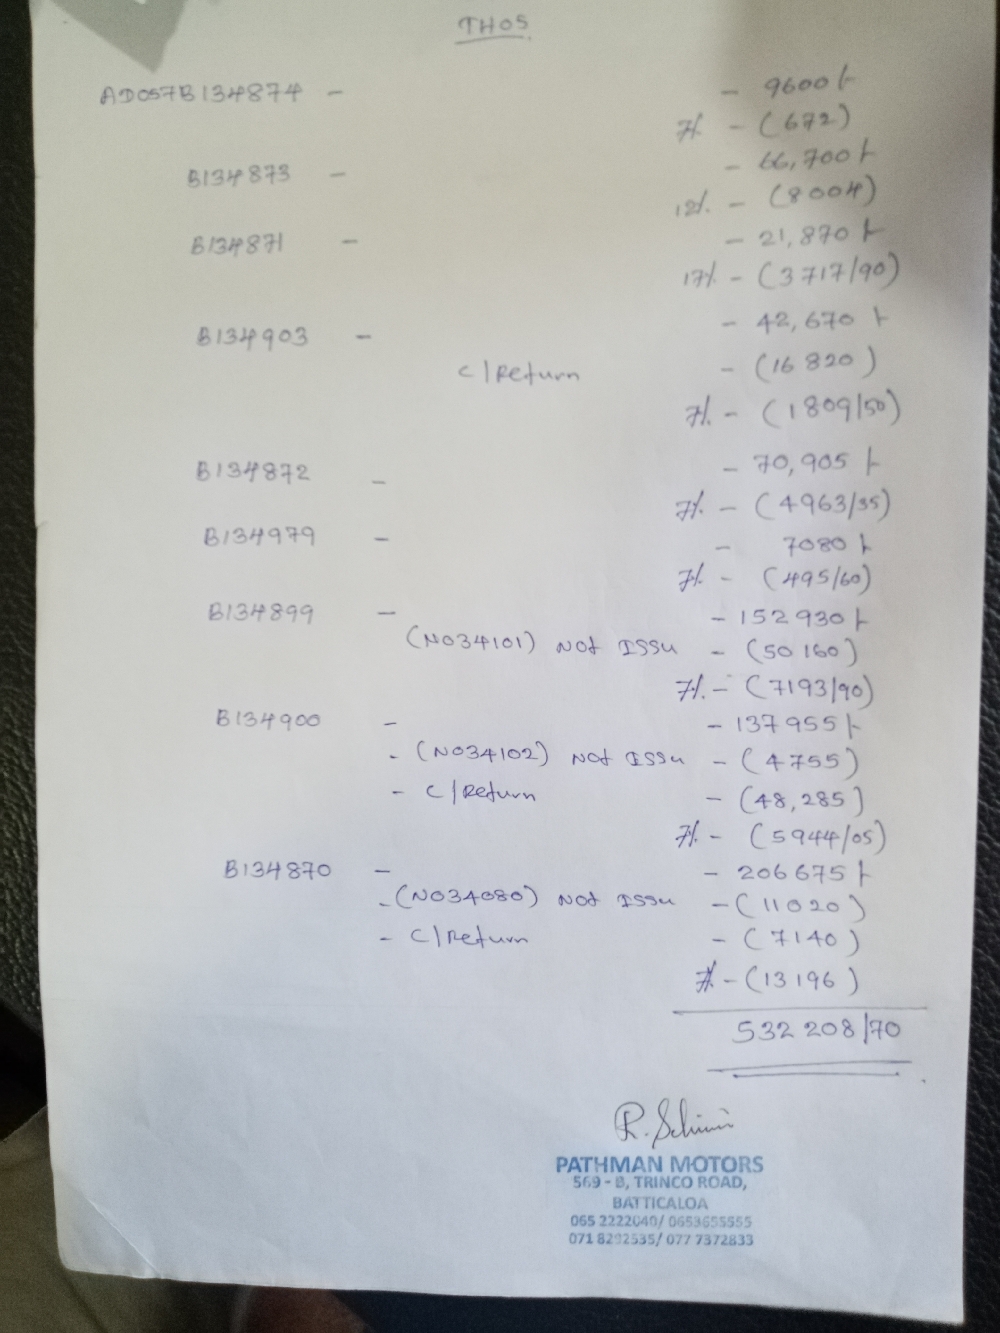 THOS
AD057B134874 - - 9600/-
7% - (672)
B134873 - - 66,700/-
12% - (8004)
B134871 - - 21,870/-
17% - (3717/90)
B134903 - - 42,670/-
C/Return - (16820)
7% - (1809/50)
B134872 - - 70,905/-
7% - (4963/35)
B134979 - - 7080/-
7% - (495/60)
B134899 - - 152930/-
(NO34101) Not Issu - (50160)
7% - (7193/90)
B134900 - - 137955/-
- (NO34102) Not Issu - (4755)
- C/Return - (48,285)
7% - (5944/05)
B134870 - - 206675/-
- (NO34080) Not Issu - (11020)
- C/Return - (7140)
7% - (13196)
532208/70
PATHMAN MOTORS
569 - B, TRINCO ROAD,
BATTICALOA
065 2222040/ 0653655555
071 8292535/ 077 7372833